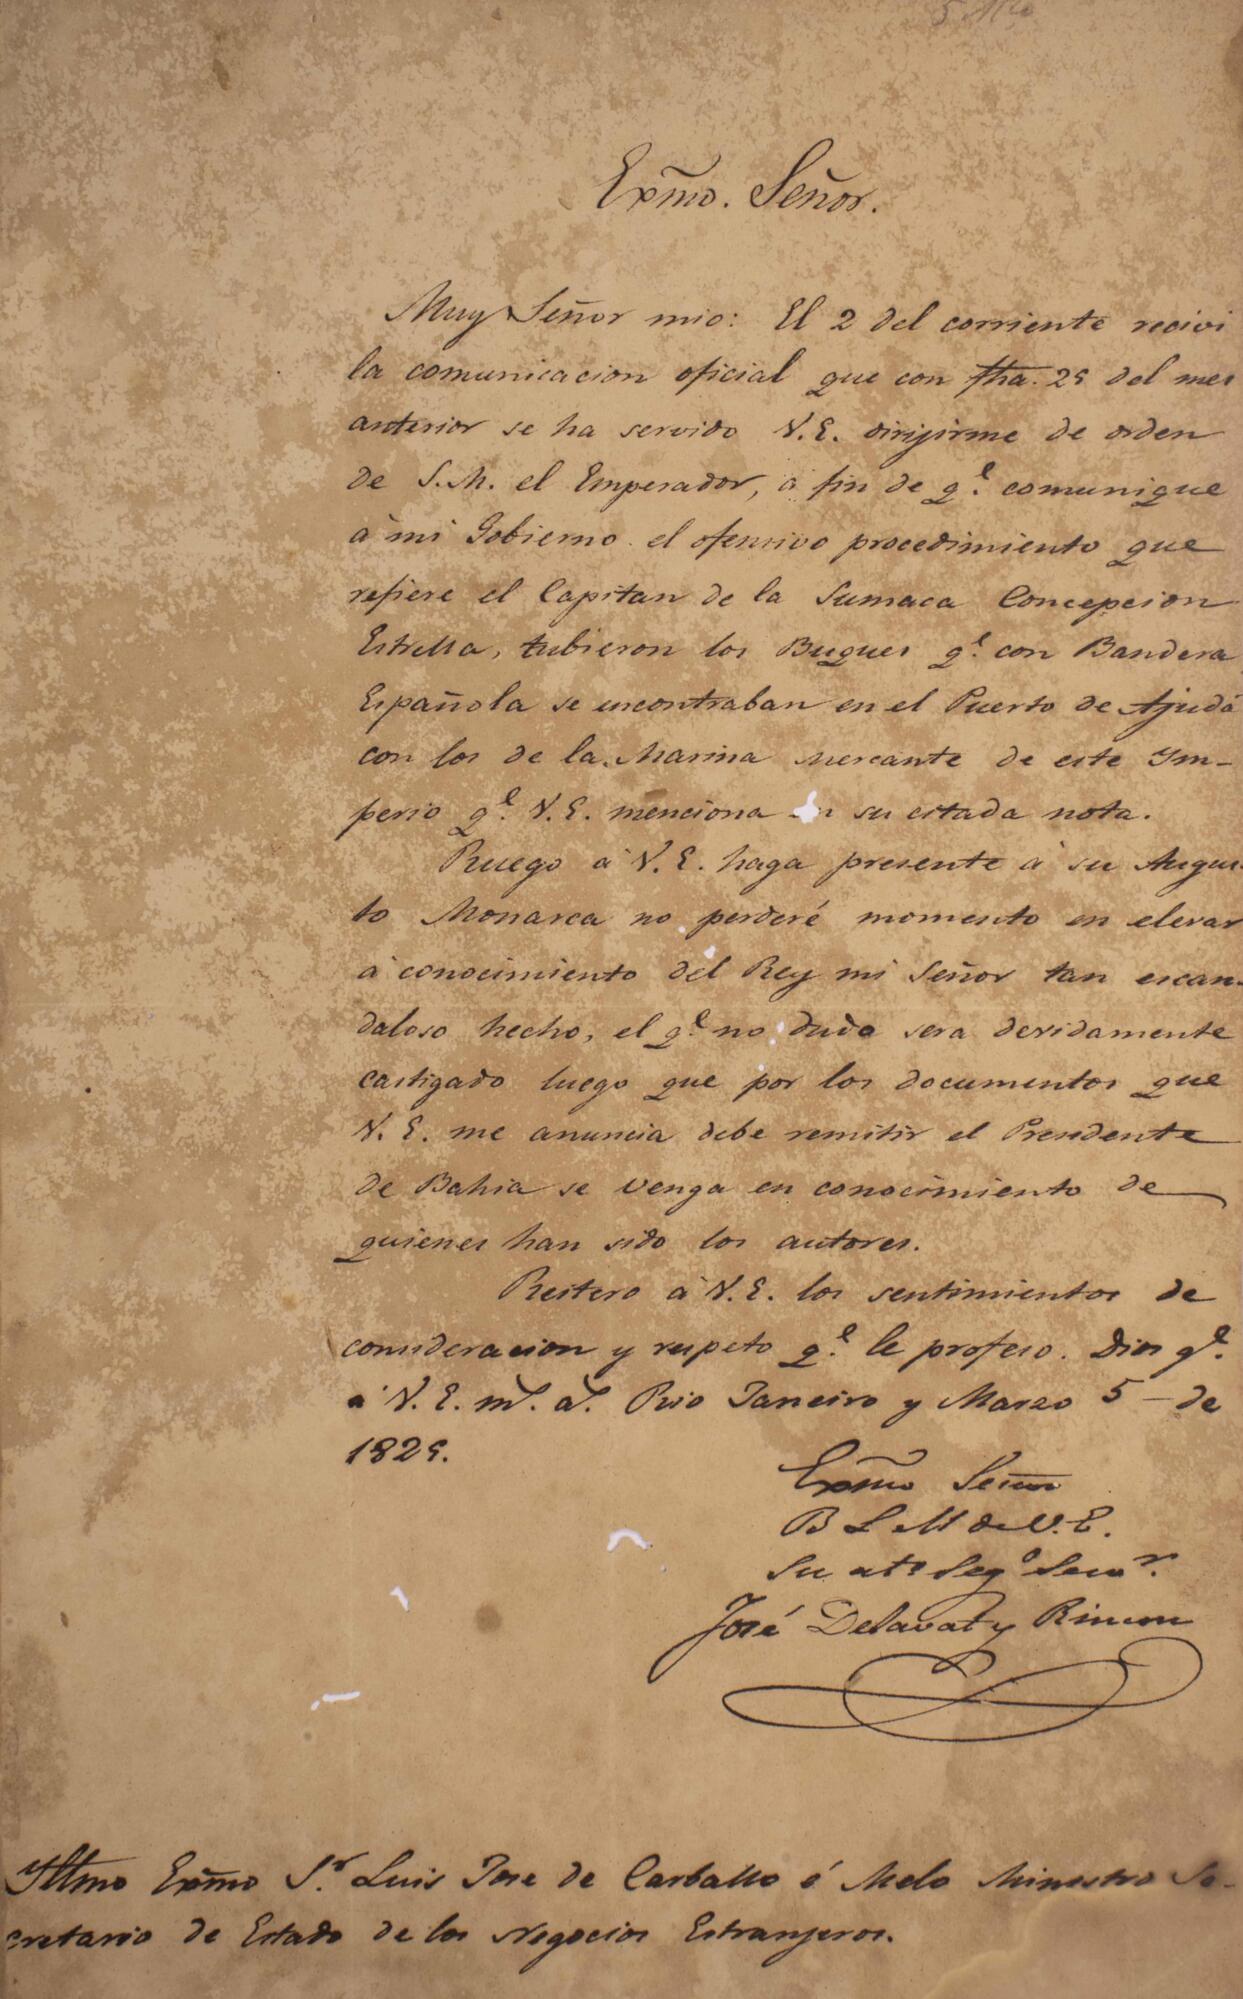 5 Mço
Exm̃o. Señor.
Muy Señor mio: El 2 del corriente recivi
la comunicacion oficial que con fha. 25 del mes
anterior se ha servido V.E. dirijirme de orden
de S.M. el Emperador, á fin de q.e comunique
á mi Gobierno el ofensivo procedimiento que
refiere el Capitan de la Sumaca Concepcion
Estrella, tubieron los Buques q.e con Bandera
Española se encontraban en el Puerto de Ajudá
con los de la Marina Mercante de este Im-
perio q.e V.E. menciona en su citada nota.
Ruego á V.E. haga presente á su Augus-
to Monarca no perderé momento en elevar
á conocimiento del Rey mi Señor tan escan-
daloso hecho, el q.e no dudo sera devidamente
castigado luego que por los documentos que
V.E. me anuncia debe remitir el Presidente
de Bahia se venga en conocimiento de
quienes han sido los autores.
Reitero á V.E. los sentimientos de
consideracion y respeto q.e le profeso. Dios g.e
á V.E. m.s a.s Rio Janeiro y Marzo 5 - de
1825.
Exm̃o Señor
B L M de V.E.
Su ato Seg.o Serv.r
José Delavat y Rincon
Yltmo Exm̃o S.r Luis Jose de Carballo é Melo Ministro Se-
cretario de Estado de los Negocios Estranjeros.